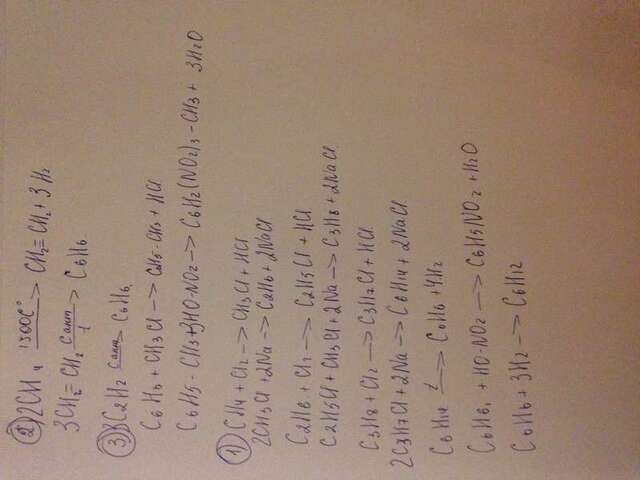 2) 2CH4 1500C° → CH2=CH2 + 3H2
3CH2=CH2 C акт t → C6H6
3) 3C2H2 C акт → C6H6
C6H6 + CH3Cl → C6H5-CH3 + HCl
C6H5-CH3 + 3HO-NO2 → C6H2(NO2)3-CH3 + 3H2O
1) CH4 + Cl2 → CH3Cl + HCl
2CH3Cl + 2Na → C2H6 + 2NaCl
C2H6 + Cl2 → C2H5Cl + HCl
C2H5Cl + CH3Cl + 2Na → C3H8 + 2NaCl
C3H8 + Cl2 → C3H7Cl + HCl
2C3H7Cl + 2Na → C6H14 + 2NaCl
C6H14 t → C6H6 + 4H2
C6H6 + HO-NO2 → C6H5NO2 + H2O
C6H6 + 3H2 → C6H12